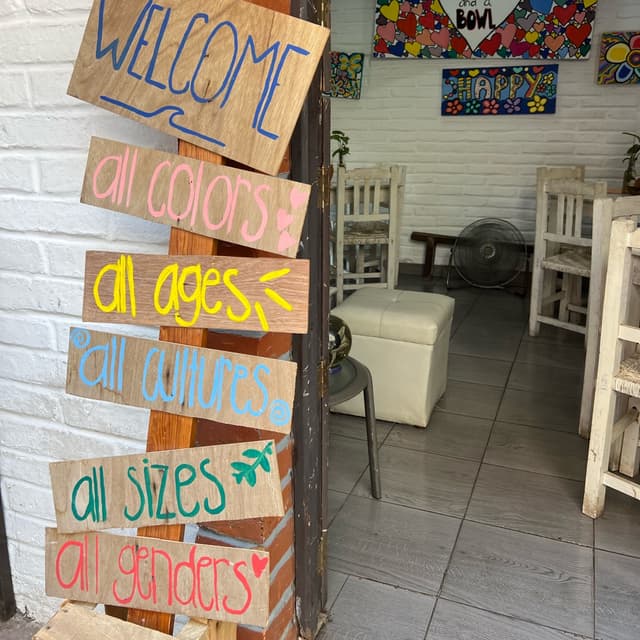 WELCOME
all colors
all ages
all cultures
all sizes
all genders
and a
BOWL
HAPPY